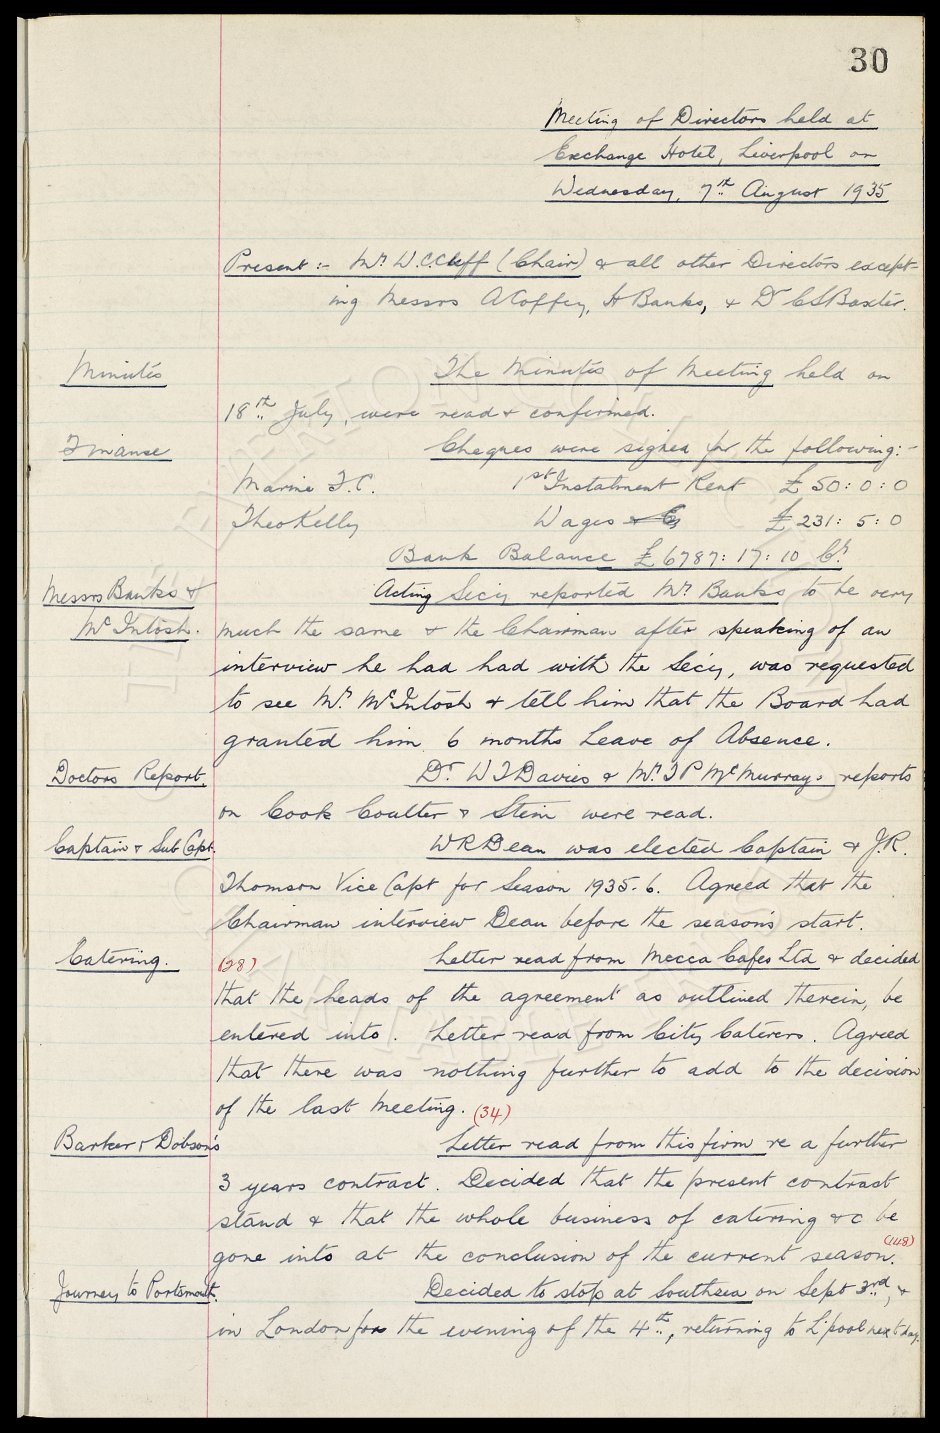 30
Meeting of Directors held at
Exchange Hotel, Liverpool on
Wednesday, 7th August 1935
Present:- Mr W.C. Cuff (Chair) & all other Directors except-
ing Messrs A Coffey, H Banks, & Dr C S Baxter.
Minutes The Minutes of Meeting held on
18th July, were read & confirmed.
Finance Cheques were signed for the following:-
Marine F.C. 1st Instalment Rent £50:0:0
Theo Kelly Wages £231:5:0
Bank Balance £6787:17:10 Cr.
Messrs Banks & Acting Secy reported Mr Banks to be very
McIntosh. much the same & the Chairman after speaking of an
interview he had had with the Secy, was requested
to see Mr. McIntosh & tell him that the Board had
granted him 6 months Leave of Absence.
Doctors Report. Dr. W J Davies & Mr. T P McMurray's reports
on Cook Coulter & Stein were read.
Captain & Sub Capt. W R Dean was elected Captain & J.R.
Thomson Vice Capt for Season 1935-6. Agreed that the
Chairman interview Dean before the season's start.
Catering. (28) Letter read from Mecca Cafes Ltd & decided
that the heads of the agreement as outlined therein, be
entered into. Letter read from City Caterers. Agreed
that there was nothing further to add to the decision
of the last Meeting. (34)
Barker & Dobson's Letter read from this firm re a further
3 years contract. Decided that the present contract
stand & that the whole business of catering &c be
gone into at the conclusion of the current season. (148)
Journey to Portsmouth. Decided to stop at Southsea on Sept 3rd, &
in London for the evening of the 4th, returning to L'pool next day.